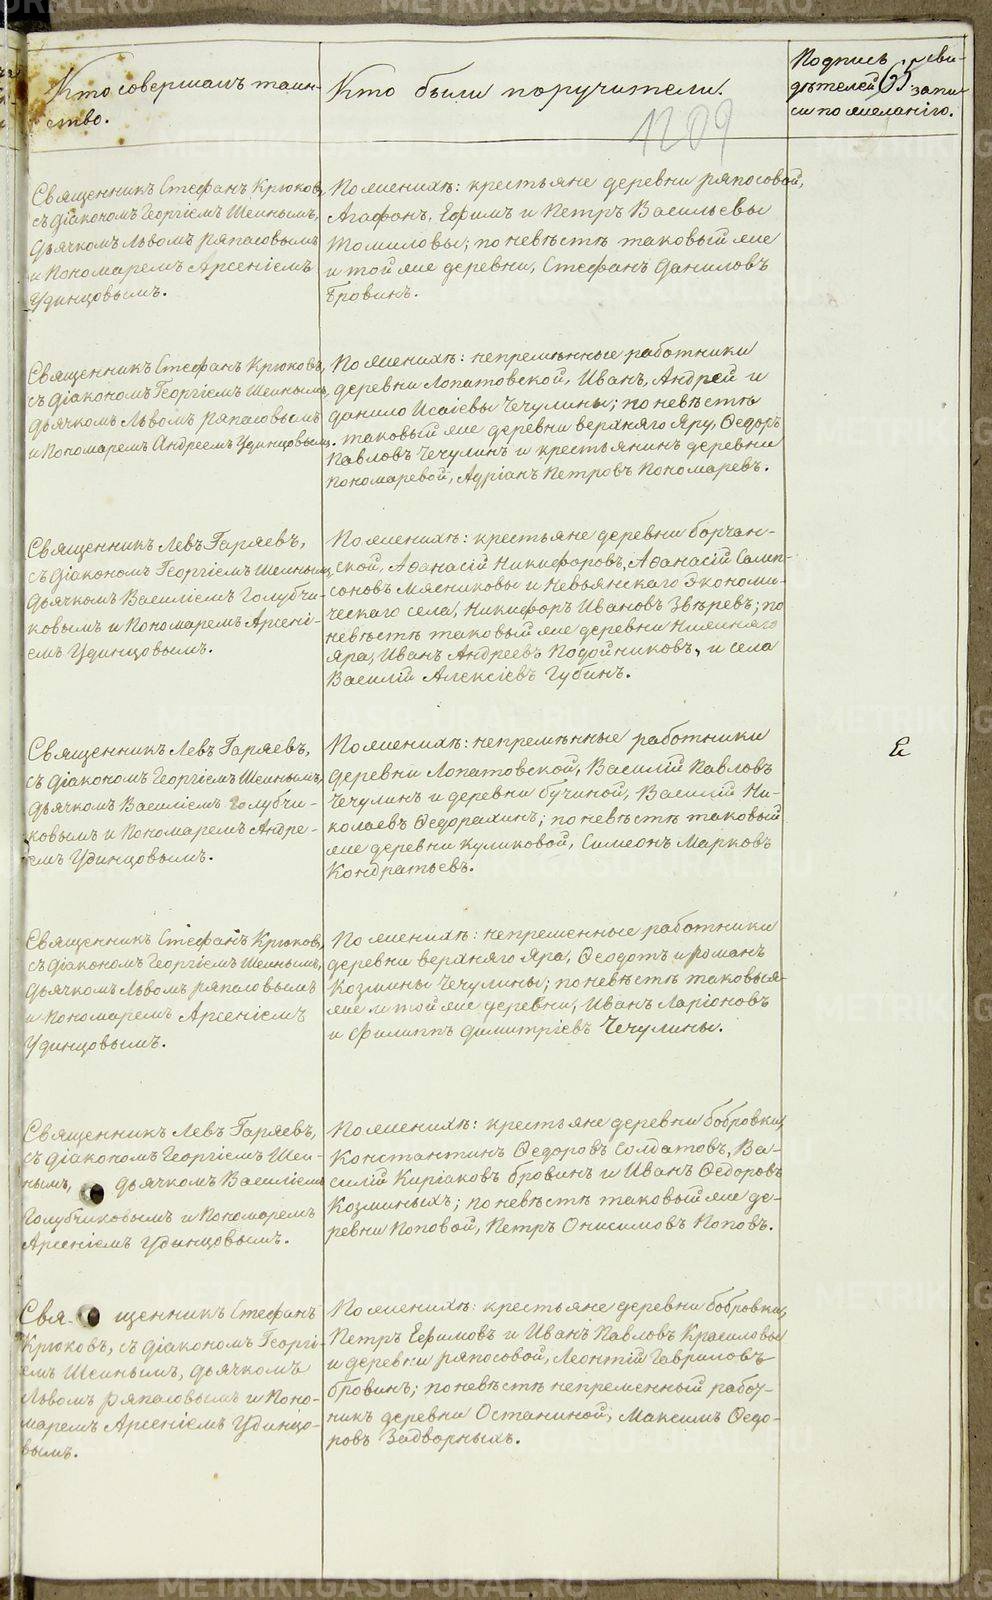 Кто совершалъ таин-
ство.
Кто были поручители.
Подпись сви-
дѣтелей запи-
си по желанію.
65
1209
Священникъ Стефанъ Крюковъ,
съ діакономъ Георгіемъ Шеинымъ,
дьячкомъ Львомъ Ряпасовымъ
и Пономаремъ Арсеніемъ
Удинцовымъ.
По женихѣ: крестьяне деревни Ряпосовой,
Агафонъ, Ефимъ и Петръ Васильевы
Томиловы; по невѣстѣ таковый же
и той же деревни, Стефанъ Даниловъ
Бровинъ.
Священникъ Стефанъ Крюковъ,
съ діакономъ Георгіемъ Шеинымъ,
дьячкомъ Львомъ Ряпасовымъ
и Пономаремъ Андреемъ Удинцовымъ.
По женихѣ: непремѣнные работники
деревни Лопатовской, Иванъ, Андрей и
Данило Исаіевы Чечулины; по невѣстѣ
таковый же деревни верхняго Яру, Ѳедоръ
Павловъ Чечулинъ и крестьянинъ деревни
Пономаревой, Адріанъ Петровъ Пономаревъ.
Священникъ Левъ Гаряевъ,
съ діакономъ Георгіемъ Шеинымъ,
дьячкомъ Василіемъ Голубчи-
ковымъ и Пономаремъ Арсені-
емъ Удинцовымъ.
По женихѣ: крестьяне деревни Борчан-
ской, Аѳанасій Никифоровъ, Аѳанасій Самп-
соновъ Мясниковы и Невьянскаго Экономи-
ческаго села, Никифоръ Ивановъ Звѣревъ; по
невѣстѣ таковый же деревни Нижняго
Яра, Иванъ Андреевъ Подойниковъ, и села
Василій Алексіевъ Губинъ.
Священникъ Левъ Гаряевъ,
съ діакономъ Георгіемъ Шеинымъ,
дьячкомъ Василіемъ Голубчи-
ковымъ и Пономаремъ Андре-
емъ Удинцовымъ.
По женихѣ: непремѣнные работники
деревни Лопатовской, Василій Павловъ
Чечулинъ и деревни Бучиной, Василій Ни-
колаевъ Ѳедорахинъ; по невѣстѣ таковый
же деревни Куликовой, Симеонъ Марковъ
Кондратьевъ.
Священникъ Стефанъ Крюковъ,
съ діакономъ Георгіемъ Шеинымъ,
дьячкомъ Львомъ Ряпасовымъ
и Пономаремъ Арсеніемъ
Удинцовымъ.
По женихѣ: непременные работники
деревни верхняго Яра, Ѳеодотъ и Романъ
Козмины Чечулины; по невѣстѣ таковыя-
же и той же деревни, Иванъ Ларіоновъ
и Филиппъ Димитріевъ Чечулины.
Священникъ Левъ Гаряевъ,
съ діакономъ Георгіемъ Шеи-
нымъ, дьячкомъ Василіемъ
Голубчиковымъ и Пономаремъ
Арсеніемъ Удинцовымъ.
По женихѣ: крестьяне деревни Бобровки,
Константинъ Ѳедоровъ Солдатовъ, Ва-
силій Киріаковъ Бровинъ и Иванъ Ѳедоровъ
Козминыхъ; по невѣстѣ таковый же де-
ревни Поповой, Петръ Онисимовъ Поповъ.
Свя- щенникъ Стефанъ
Крюковъ, съ діакономъ Георгі-
емъ Шеинымъ, дьячкомъ
Львомъ Ряпасовымъ и Поно-
маремъ Арсеніемъ Удинцо-
вымъ.
По женихѣ: крестьяне деревни Бобровки,
Петръ Ефимовъ и Иванъ Павловъ Красиловы
и деревни Ряпосовой, Леонтій Гавриловъ
Бровинъ; по невѣстѣ непременный работ-
никъ деревни Останиной, Максимъ Ѳедо-
ровъ Задворныхъ.
METRIKI.GASU-URAL.RU